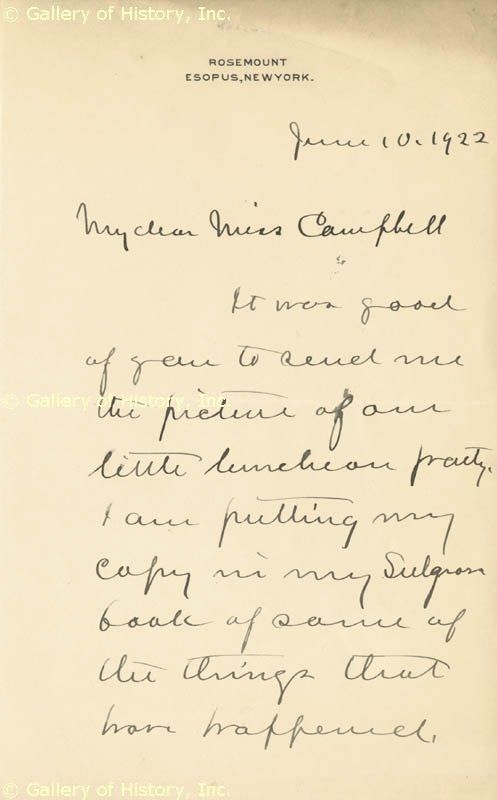 © Gallery of History, Inc.
ROSEMOUNT
ESOPUS, NEW YORK.
June 10. 1922
My dear Miss Campbell
It was good
of you to send me
the picture of our
© Gallery of History, Inc.
little luncheon party.
I am putting my
copy in my Sulgrave
book of some of
the things that
have happened.
© Gallery of History, Inc.